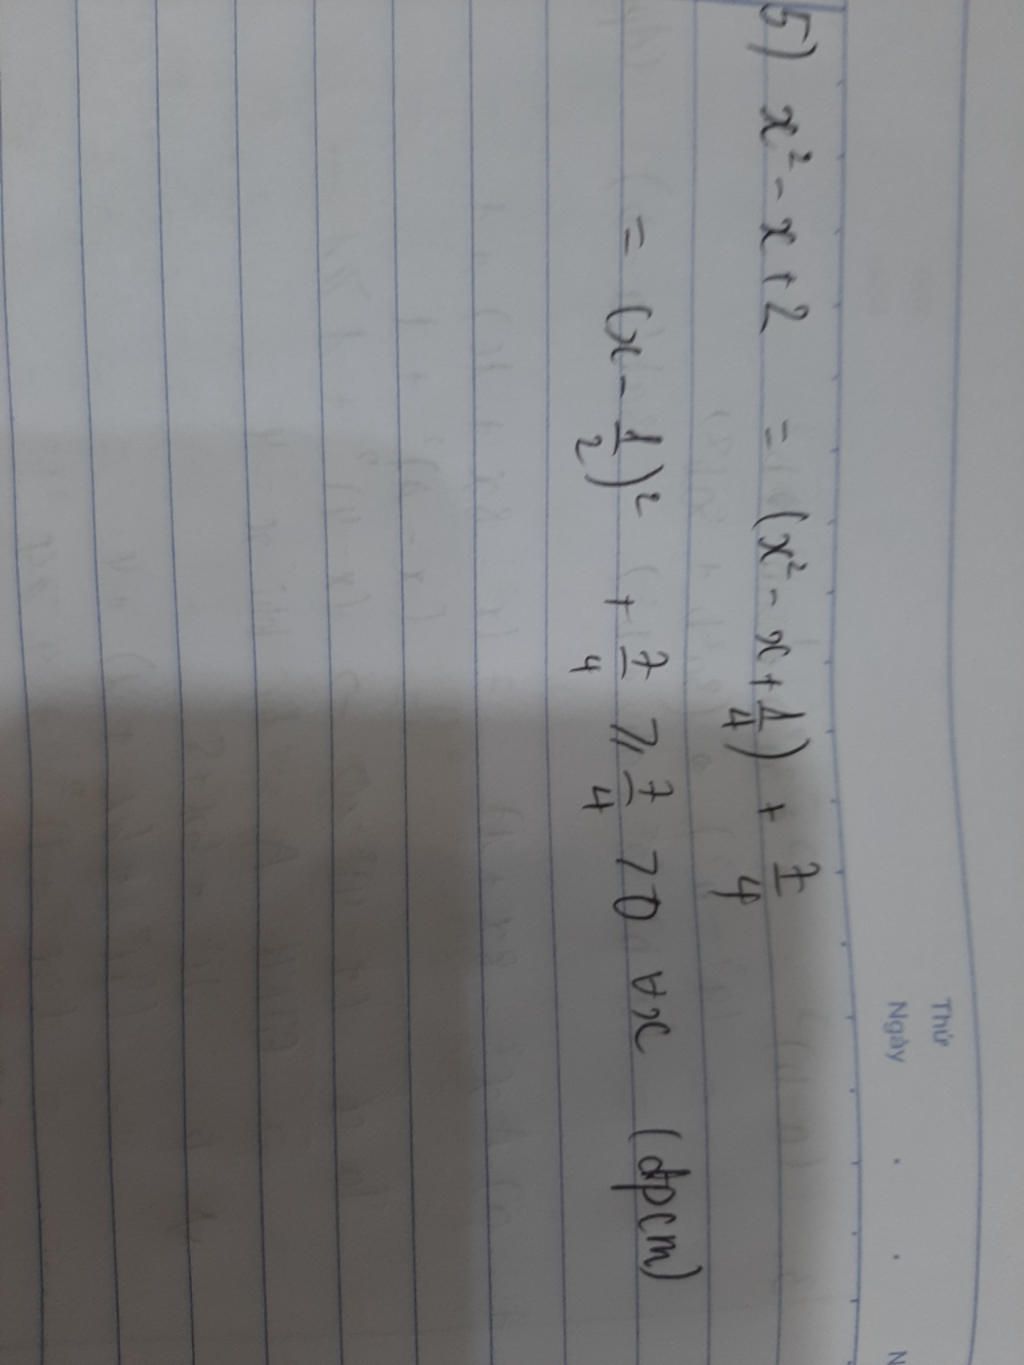 Thứ
Ngày
N
5) x² - x + 2 = (x² - x + 1/4) + 7/4
= (x - 1/2)² + 7/4 ⩾ 7/4 > 0 ∀x (đpcm)